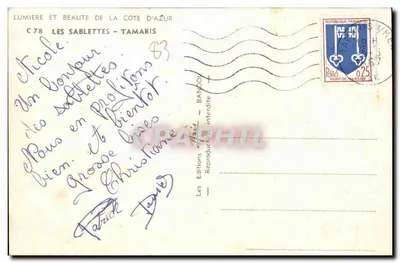 LUMIERE ET BEAUTE DE LA COTE D'AZUR
C 78 LES SABLETTES - TAMARIS
83
Nicole.
Un bonjour
des sablettes.
Nous en profitons
bien. et bientot
Grosse bises
Christiane
Patrick
Les Editions BANDOL
Reproduction interdite
REPUBLIQUE FRANCAISE
0,25